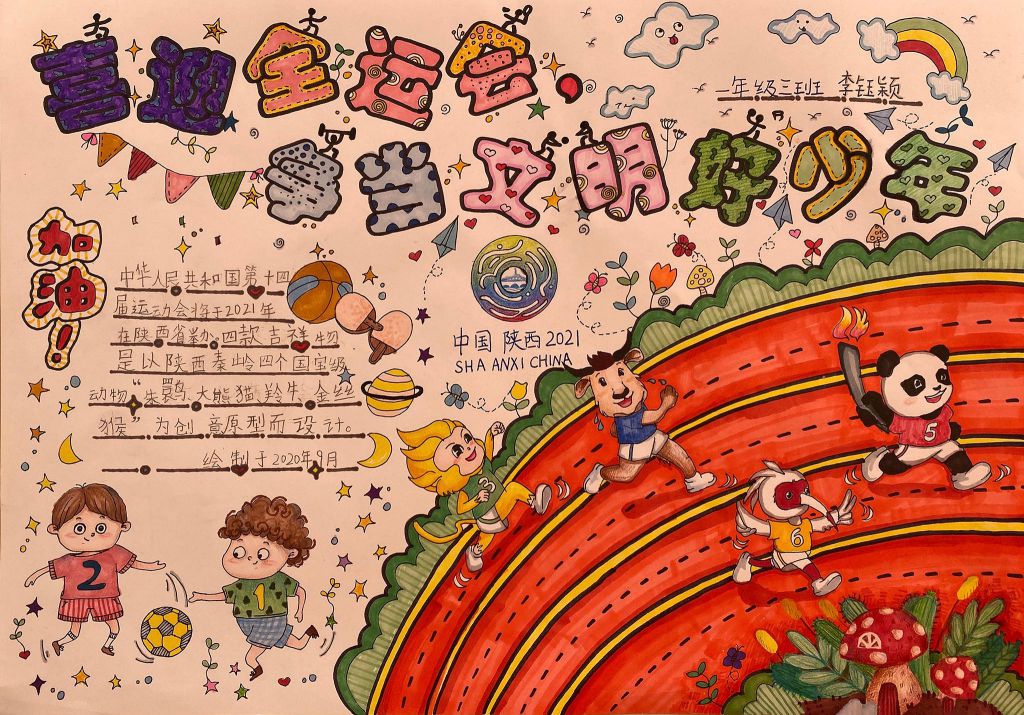 喜迎全运会,
争当文明好少年
一年级三班 李钰颖
加油!
中华人民共和国第十四
届运动会将于2021年
在陕西省举办,四款吉祥物
是以陕西秦岭四个国宝级
动物“朱鹮、大熊猫、羚牛、金丝
猴”为创意原型而设计。
绘制于2020年9月
中国 陕西 2021
SHAANXI CHINA
3
5
6
2
1